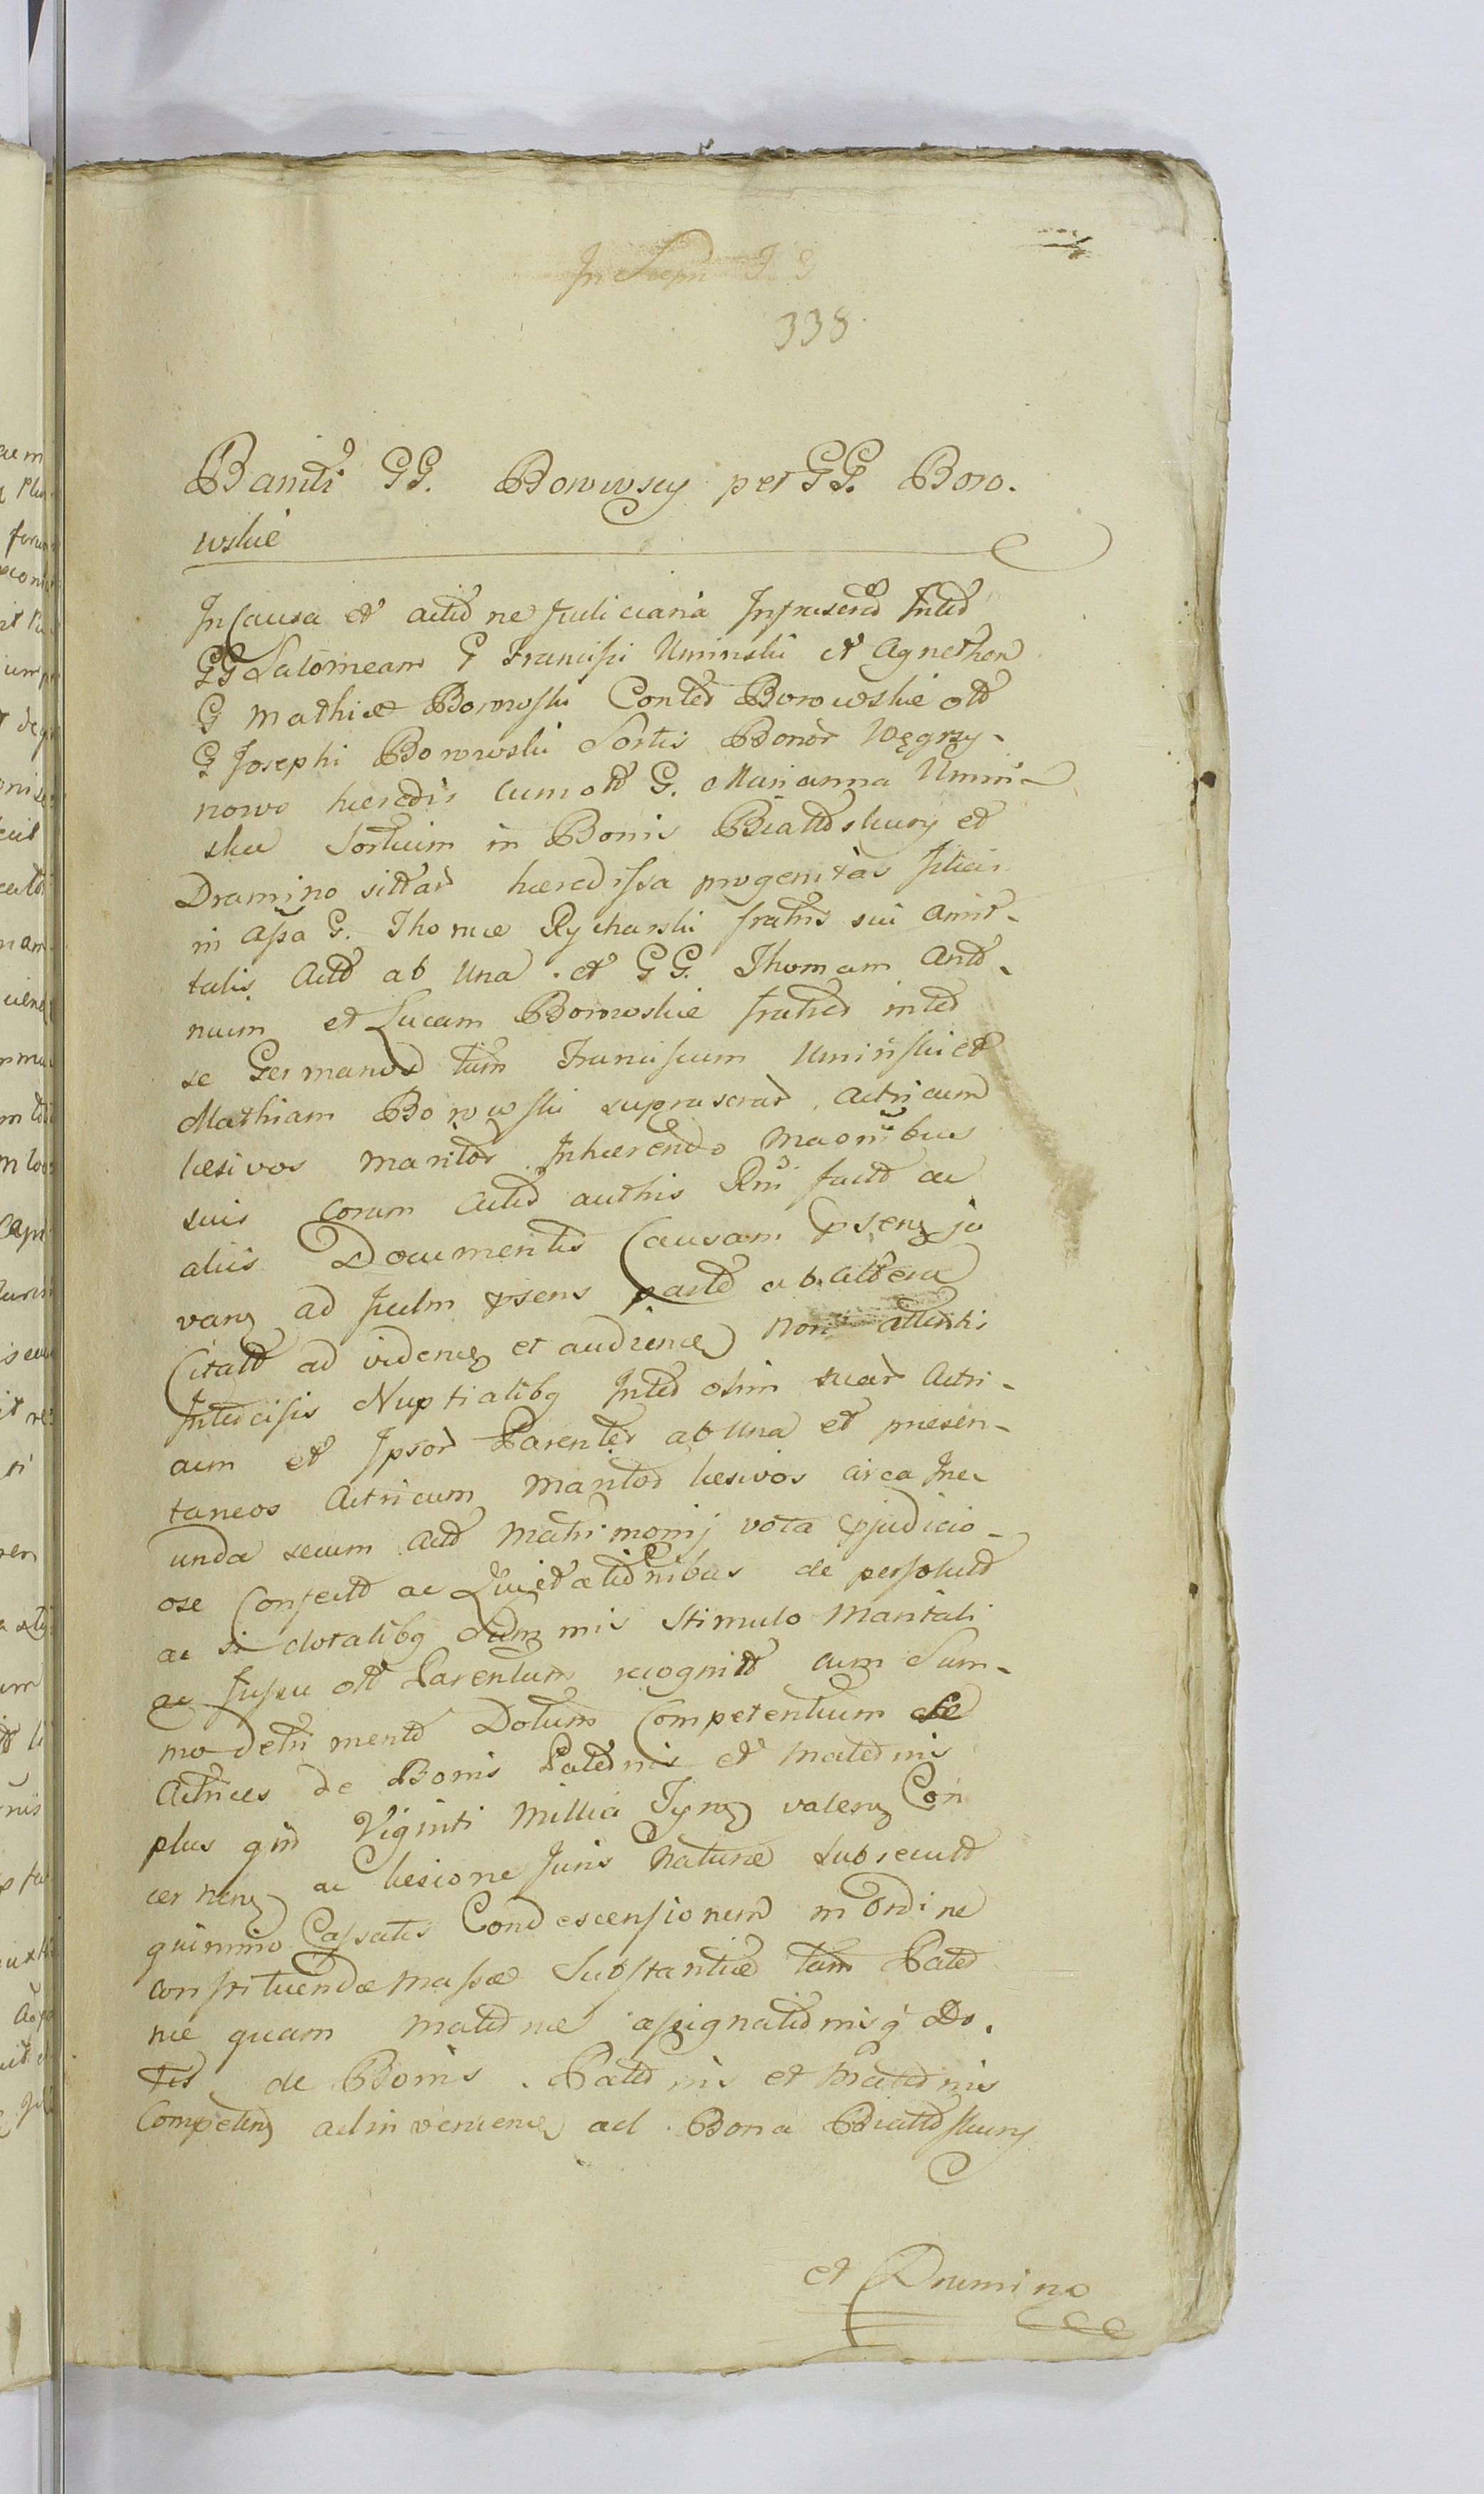 338
Banіti GG. Borowscy per GG. Boro.
wskie
In Causa et actione Judiciaria Infrascrad Inted
GG Salomeam G Francisci Uminski et Agnethen
G Mathiæ Borowski Conted Borowskie olt
G Josephi Borowski Sortis Bonor Węgrzy-
nowo hæredis cum olt G. Marianna Umin-
ska Sortium in Bonis Biattdskury et
Dramino sittar hæredissa progenitas filias
in assa G. Thomæ Rycharski fratris sui amit-
talis Actd ab una . et GG. Thomam Antd-
nium et Lucam Borowskie fratred inted
se Germanos tum Franciscum Uminski et
Mathiam Borowski suprascrad, actricum
læsivos maritos Inhærendo maonibus
suis coram actis authis Rni factd ac
aliis Documentis Causam psenz ju
vanz ad Judm psens partd ab altera
Citatd ad videnz et audienz non attentis
Intercisis Nuptialibq Inted olim suar Actri-
cum et Ipsor Parented ab una et præsen-
taneos Actricum maritos læsivos circa Ine-
unda secum actd Matrimonij vota pjudicio-
ose Confectd ac Quietationibus de persolutd
ac si dotalibq Summis Stimulo Maritali
ac Jussu olt Parentum recognitd cum Sum-
mo detrimentd Dotum Competentium
Actrices de Bonis Paternis et Maternis
plus qm Viginti Millia Tynz valenz Con
cernenz ac læsione Juris Naturæ subsecutd
quinimo Cassatis Condescensionem in Ordine
constituendæ massæ Substantiæ tam Pated
næ quam Maternæ assignationisq Do.
tis de Bonis . Paternis et Maternis
Competenz adinvenienz ad Bona Biattdskury
et Dramino